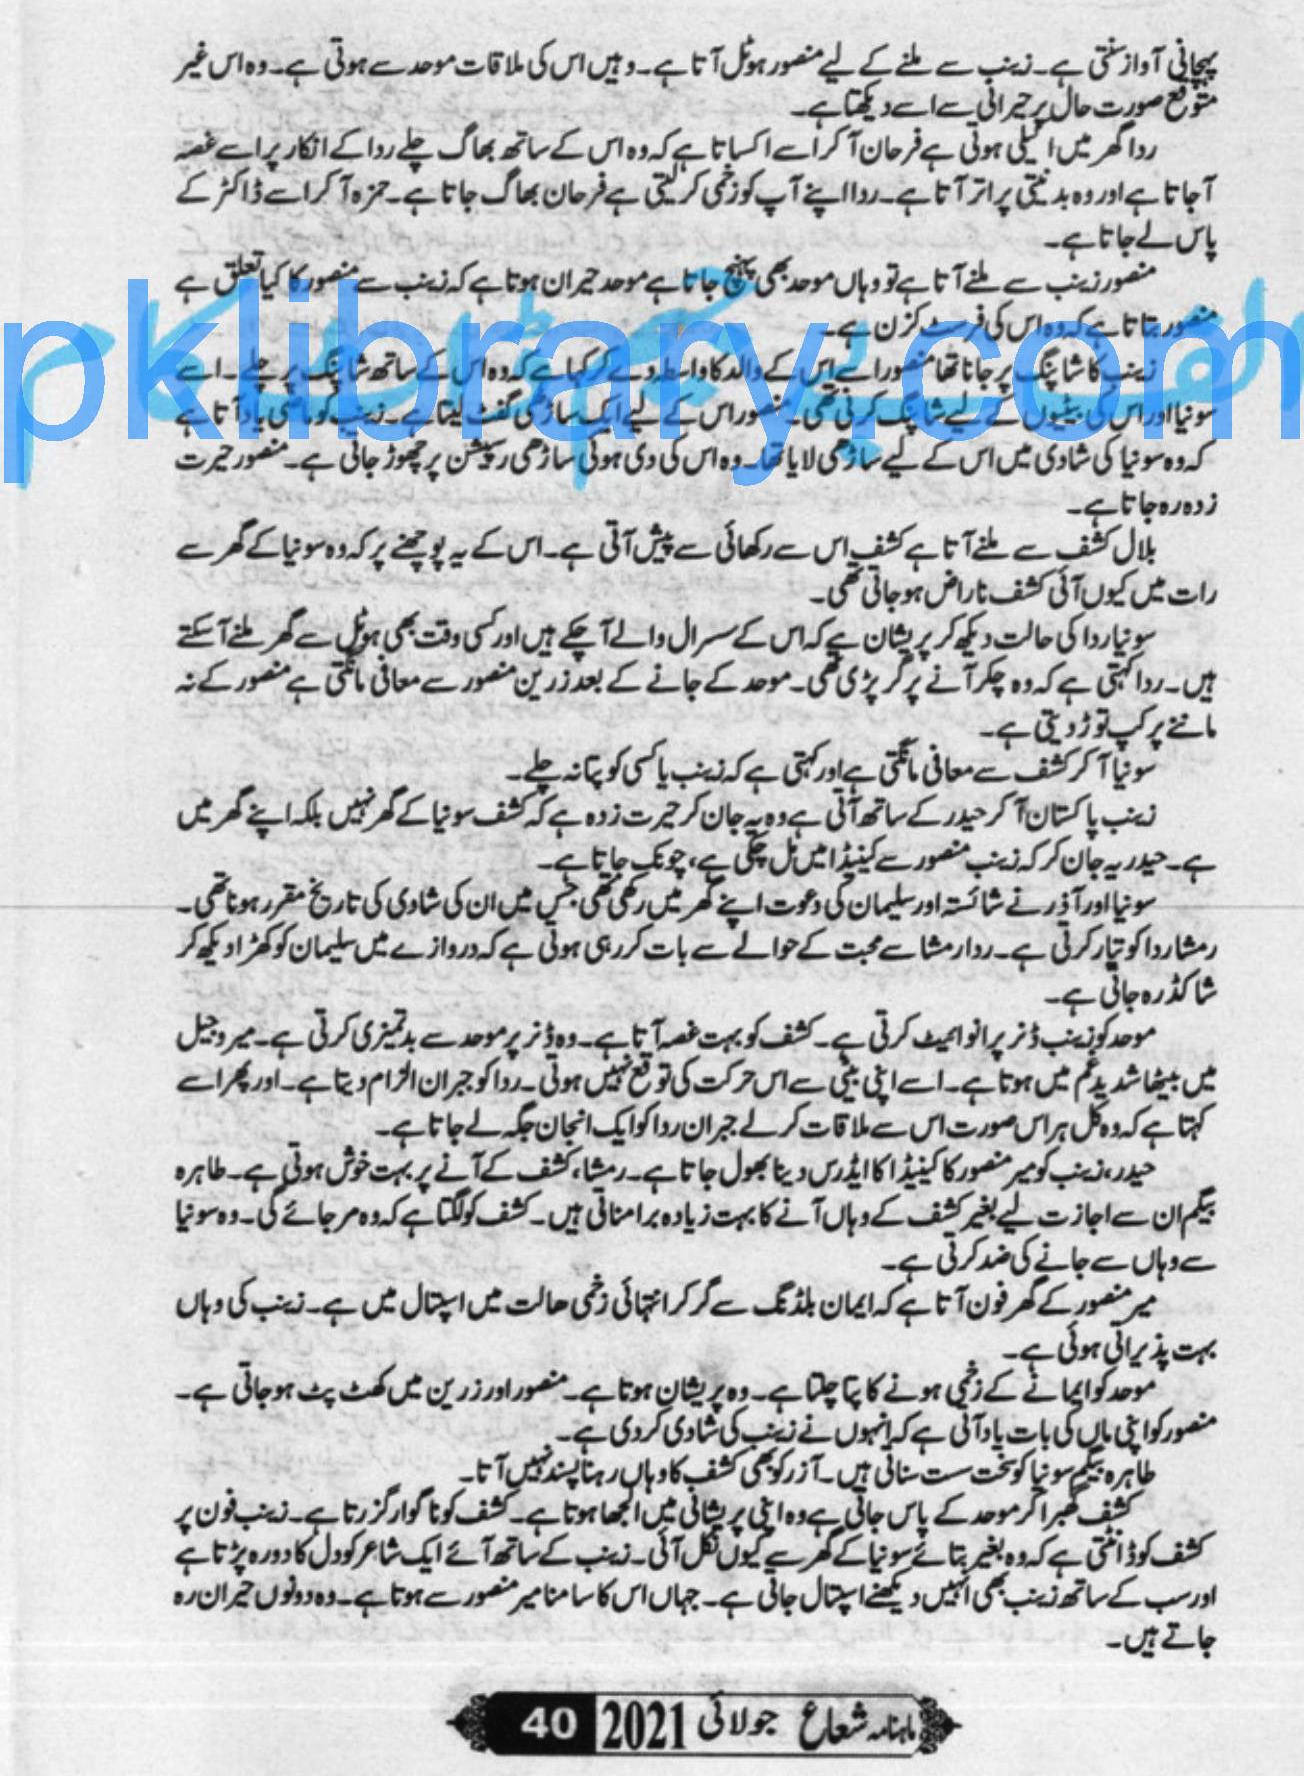 پہچانی آواز سنتی ہے۔ زینب سے ملنے کے لیے منصور ہوٹل آتا ہے۔ وہیں اس کی ملاقات موحد سے ہوتی ہے۔ وہ اس غیر
متوقع صورت حال پر حیرانی سے اسے دیکھتا ہے۔
ردا گھر میں اکیلی ہوتی ہے فرحان آکر اسے اکساتا ہے کہ وہ اس کے ساتھ بھاگ چلے ردا کے انکار پر اسے غصہ
آجاتا ہے اور وہ بدنیتی پر اتر آتا ہے۔ ردا اپنے آپ کو زخمی کر لیتی ہے فرحان بھاگ جاتا ہے۔ حمزہ آکر اسے ڈاکٹر کے
پاس لے جاتا ہے۔
منصور زینب سے ملنے آتا ہے تو وہاں موحد بھی پہنچ جاتا ہے موحد حیران ہوتا ہے کہ زینب سے منصور کا کیا تعلق ہے
منصور بتاتا ہے کہ وہ اس کی فرسٹ کزن ہے۔
pklibrary.com
زینب کا شاپنگ پر جانا تھا منصور اسے اس کے والد کا واسطہ دے کر کہا ہے کہ وہ اس کے ساتھ شاپنگ پر چلے۔ اسے
سونیا اور اس کی بیٹیوں کے لیے شاپنگ کرنی تھی۔ منصور اس کے لیے ایک ساڑھی گفٹ لیتا ہے۔ زینب کو ماضی یاد آتا ہے
کہ وہ سونیا کی شادی میں اس کے لیے ساڑھی لایا تھا۔ وہ اس کی دی ہوئی ساڑھی ریسپشن پر چھوڑ جاتی ہے۔ منصور حیرت
زدہ رہ جاتا ہے۔
بلال کشف سے ملنے آتا ہے کشف اس سے رکھائی سے پیش آتی ہے۔ اس کے یہ پوچھنے پر کہ وہ سونیا کے گھر سے
رات میں کیوں آئی کشف ناراض ہو جاتی تھی۔
سونیا ردا کی حالت دیکھ کر پریشان ہے کہ اس کے سسرال والے آچکے ہیں اور کسی وقت بھی ہوٹل سے گھر ملنے آسکتے
ہیں۔ ردا کہتی ہے کہ وہ چکر آنے پر گر پڑی تھی۔ موحد کے جانے کے بعد زرین منصور سے معافی مانگتی ہے منصور کے نہ
ماننے پر کپ توڑ دیتی ہے۔
سونیا آکر کشف سے معافی مانگتی ہے اور کہتی ہے کہ زینب یا کسی کو پتا نہ چلے۔
زینب پاکستان آکر حیدر کے ساتھ آتی ہے وہ یہ جان کر حیرت زدہ ہے کہ کشف سونیا کے گھر نہیں بلکہ اپنے گھر میں
ہے۔ حیدر یہ جان کر کہ زینب منصور سے کینیڈا میں مل چکی ہے، چونک جاتا ہے۔
سونیا اور آذر نے شائستہ اور سلیمان کی دعوت اپنے گھر میں رکھی تھی جس میں ان کی شادی کی تاریخ مقرر ہونا تھی۔
رمشا ردا کو تیار کرتی ہے۔ ردا رمشا سے محبت کے حوالے سے بات کر رہی ہوتی ہے کہ دروازے میں سلیمان کو کھڑا دیکھ کر
شاکڈ رہ جاتی ہے۔
موحد کو زینب ڈنر پر انوائیٹ کرتی ہے۔ کشف کو بہت غصہ آتا ہے۔ وہ ڈنر پر موحد سے بدتمیزی کرتی ہے۔ میرو جیل
میں بیٹھا شدید غم میں ہوتا ہے۔ اسے اپنی بیٹی سے اس حرکت کی توقع نہیں ہوتی۔ ردا کو جبران الزام دیتا ہے۔ اور پھر اسے
کہتا ہے کہ وہ کل ہر اس صورت اس سے ملاقات کرلے جبران ردا کو ایک انجان جگہ لے جاتا ہے۔
حیدر، زینب کو میر منصور کا کینیڈا کا ایڈرس دینا بھول جاتا ہے۔ رمشا، کشف کے آنے پر بہت خوش ہوتی ہے۔ طاہرہ
بیگم ان سے اجازت لیے بغیر کشف کے وہاں آنے کا بہت زیادہ برا مناتی ہیں۔ کشف کو لگتا ہے کہ وہ مر جائے گی۔ وہ سونیا
سے وہاں سے جانے کی ضد کرتی ہے۔
میر منصور کے گھر فون آتا ہے کہ ایمان بلڈنگ سے گر کر انتہائی زخمی حالت میں اسپتال میں ہے۔ زینب کی وہاں
بہت پذیرائی ہوئی ہے۔
موحد کو ایمانے کے زخمی ہونے کا پتا چلتا ہے۔ وہ پریشان ہوتا ہے۔ منصور اور زرین میں کھٹ پٹ ہو جاتی ہے۔
منصور کو اپنی ماں کی بات یاد آتی ہے کہ انہوں نے زینب کی شادی کر دی ہے۔
طاہرہ بیگم سونیا کو سخت سست سناتی ہیں۔ آزر کو بھی کشف کا وہاں رہنا پسند نہیں آتا۔
کشف گھبرا کر موحد کے پاس جاتی ہے وہ اپنی پریشانی میں الجھا ہوتا ہے۔ کشف کو ناگوار گزرتا ہے۔ زینب فون پر
کشف کو ڈانٹتی ہے کہ وہ بغیر بتائے سونیا کے گھر سے کیوں نکل آئی۔ زینب کے ساتھ آئے ایک شاعر کو دل کا دورہ پڑتا ہے
اور سب کے ساتھ زینب بھی انہیں دیکھنے اسپتال جاتی ہے۔ جہاں اس کا سامنا میر منصور سے ہوتا ہے۔ وہ دونوں حیران رہ
جاتے ہیں۔
ماہنامہ شعاع جولائی 2021 40